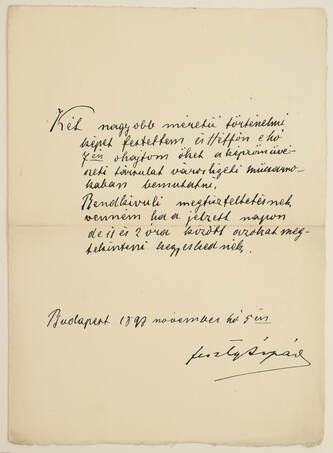 Két nagyobb méretü történelmi
képet festettem és Hétfőn e hó
7én ohajtom őket a képzőmüvé-
szeti társulat városligeti mücsarno-
kában bemutatni.
Rendkivüli megtiszteltetésnek
venném ha a jelzett napon
de 11 és 2 óra között azokat meg-
tekinteni kegyeskednék.
Budapest 1898 november hó 5én
Feszty Árpád